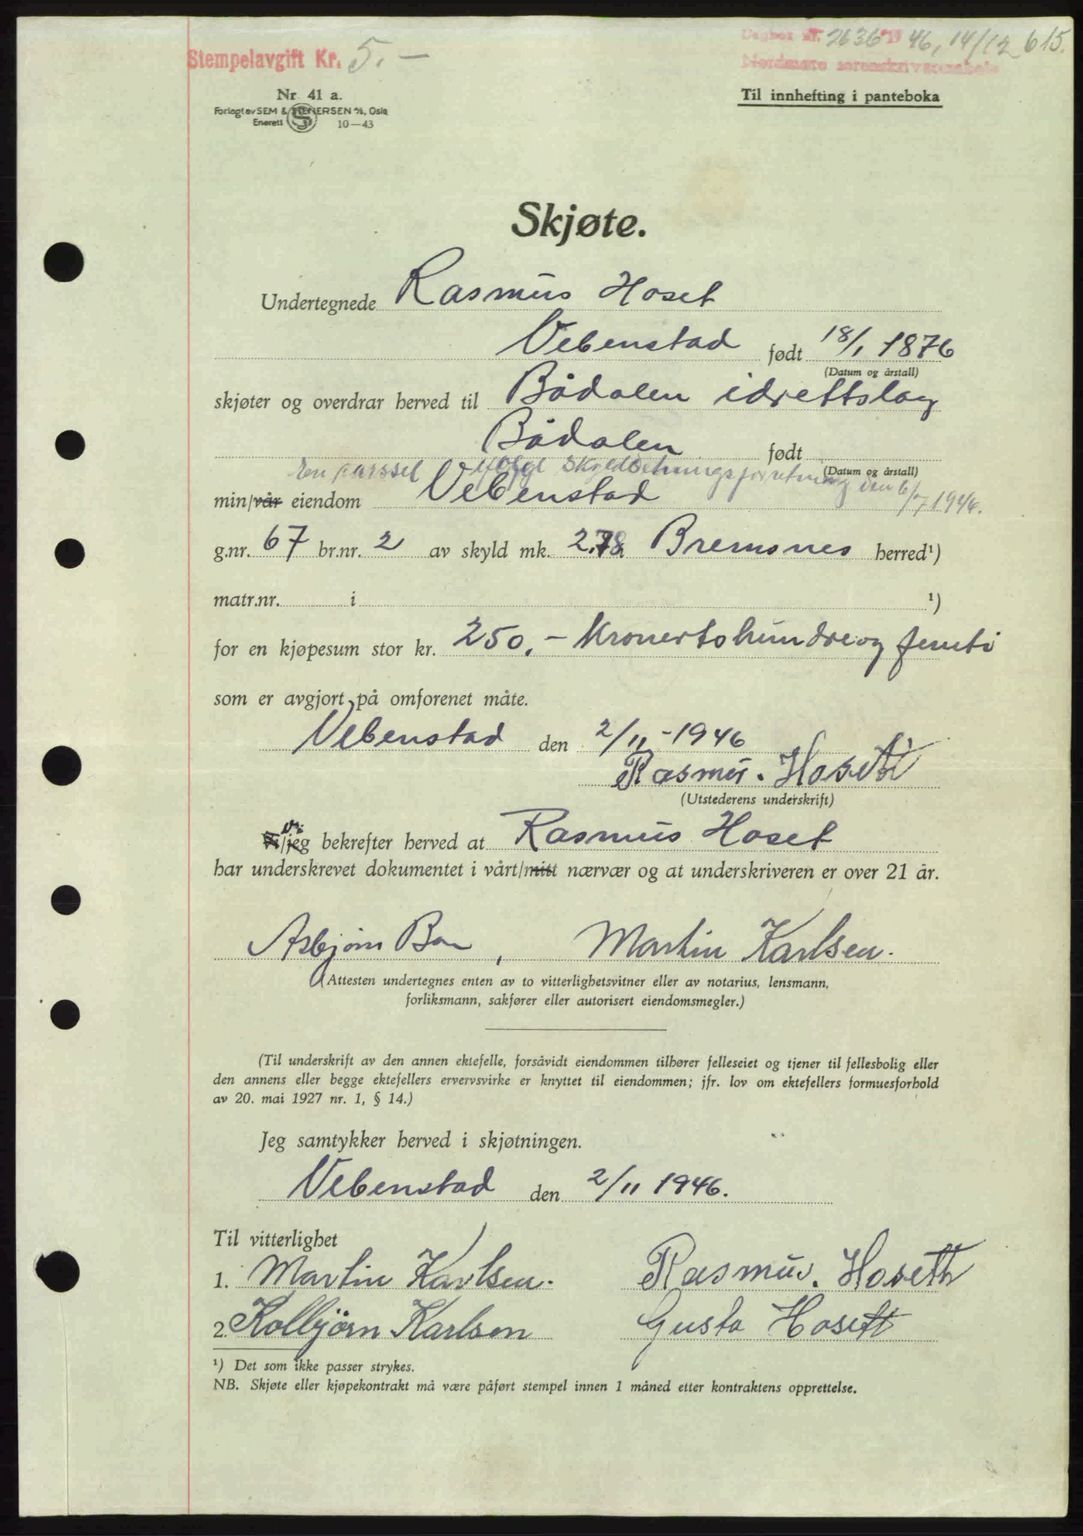 Stempelavgift Kr. 5.-
Dagbok nr. 2636 19 46, 14/12 615.
Nordmøre sorenskriverembete
Nr 41 a.
Forlagt av SEM & STENERSEN A/S, Oslo
Enerett 10—43
Til innhefting i panteboka
Skjøte.
Undertegnede Rasmus Hoset
Vebenstad født 18/1 1876
(Datum og årstall)
skjøter og overdrar herved til Bådalen idrettslag
Bådalen født
(Datum og årstall)
En parssel ifølge Skylddelningsforretning den 6/7 1946.
min/vår eiendom Vebenstad
g.nr. 67 br.nr. 2 av skyld mk. 2.78 Bremsnes herred¹)
matr.nr. i ¹)
for en kjøpesum stor kr. 250.- Kronertohundreog femti
som er avgjort på omforenet måte.
Vebenstad den 2/11-1946
Rasmus. Hoseth
(Utstederens underskrift)
Vi/jeg vi bekrefter herved at Rasmus Hoset
har underskrevet dokumentet i vårt/mitt nærvær og at underskriveren er over 21 år.
Asbjørn Bo , Martin Karlsen.
(Attesten undertegnes enten av to vitterlighetsvitner eller av notarius, lensmann,
forliksmann, sakfører eller autorisert eiendomsmegler.)
(Til underskrift av den annen ektefelle, forsåvidt eiendommen tilhører felleseiet og tjener til fellesbolig eller
den annens eller begge ektefellers ervervsvirke er knyttet til eiendommen; jfr. lov om ektefellers formuesforhold
av 20. mai 1927 nr. 1, § 14.)
Jeg samtykker herved i skjøtningen.
Vebenstad den 2/11 1946.
Til vitterlighet
1. Martin Karlsen. Rasmus. Hoseth
2. Kolbjørn Karlsen Gusta Hoseth
¹) Det som ikke passer strykes.
NB. Skjøte eller kjøpekontrakt må være påført stempel innen 1 måned etter kontraktens opprettelse.